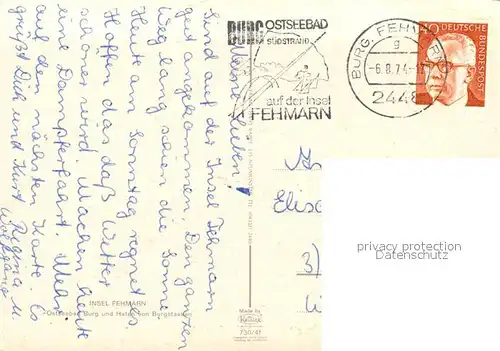 BURG OSTSEEBAD
MIT SÜDSTRAND
auf der Insel
FEHMARN
BURG, FEHMARN
g
-6.8.74-
2448
40 DEUTSCHE
BUNDESPOST
Meine Lieben!
Sind auf der Insel Fehmarn
gut angekommen. Den ganzen
Weg lang schien die Sonne.
Heute am Sonntag regnet es.
Hoffen das daß Wetter
schöner wird. Machen heute
eine Dampferfahrt. Mehr
auf dem nächsten Karte. Es
grüßt Dich und Kurt Regina u.
Wolfgang
INSEL FEHMARN
Ostseebad Burg und Hafen von Burgstaaken
Made by
73074f
An
Elise
3)
privacy protection
VERY GOOD